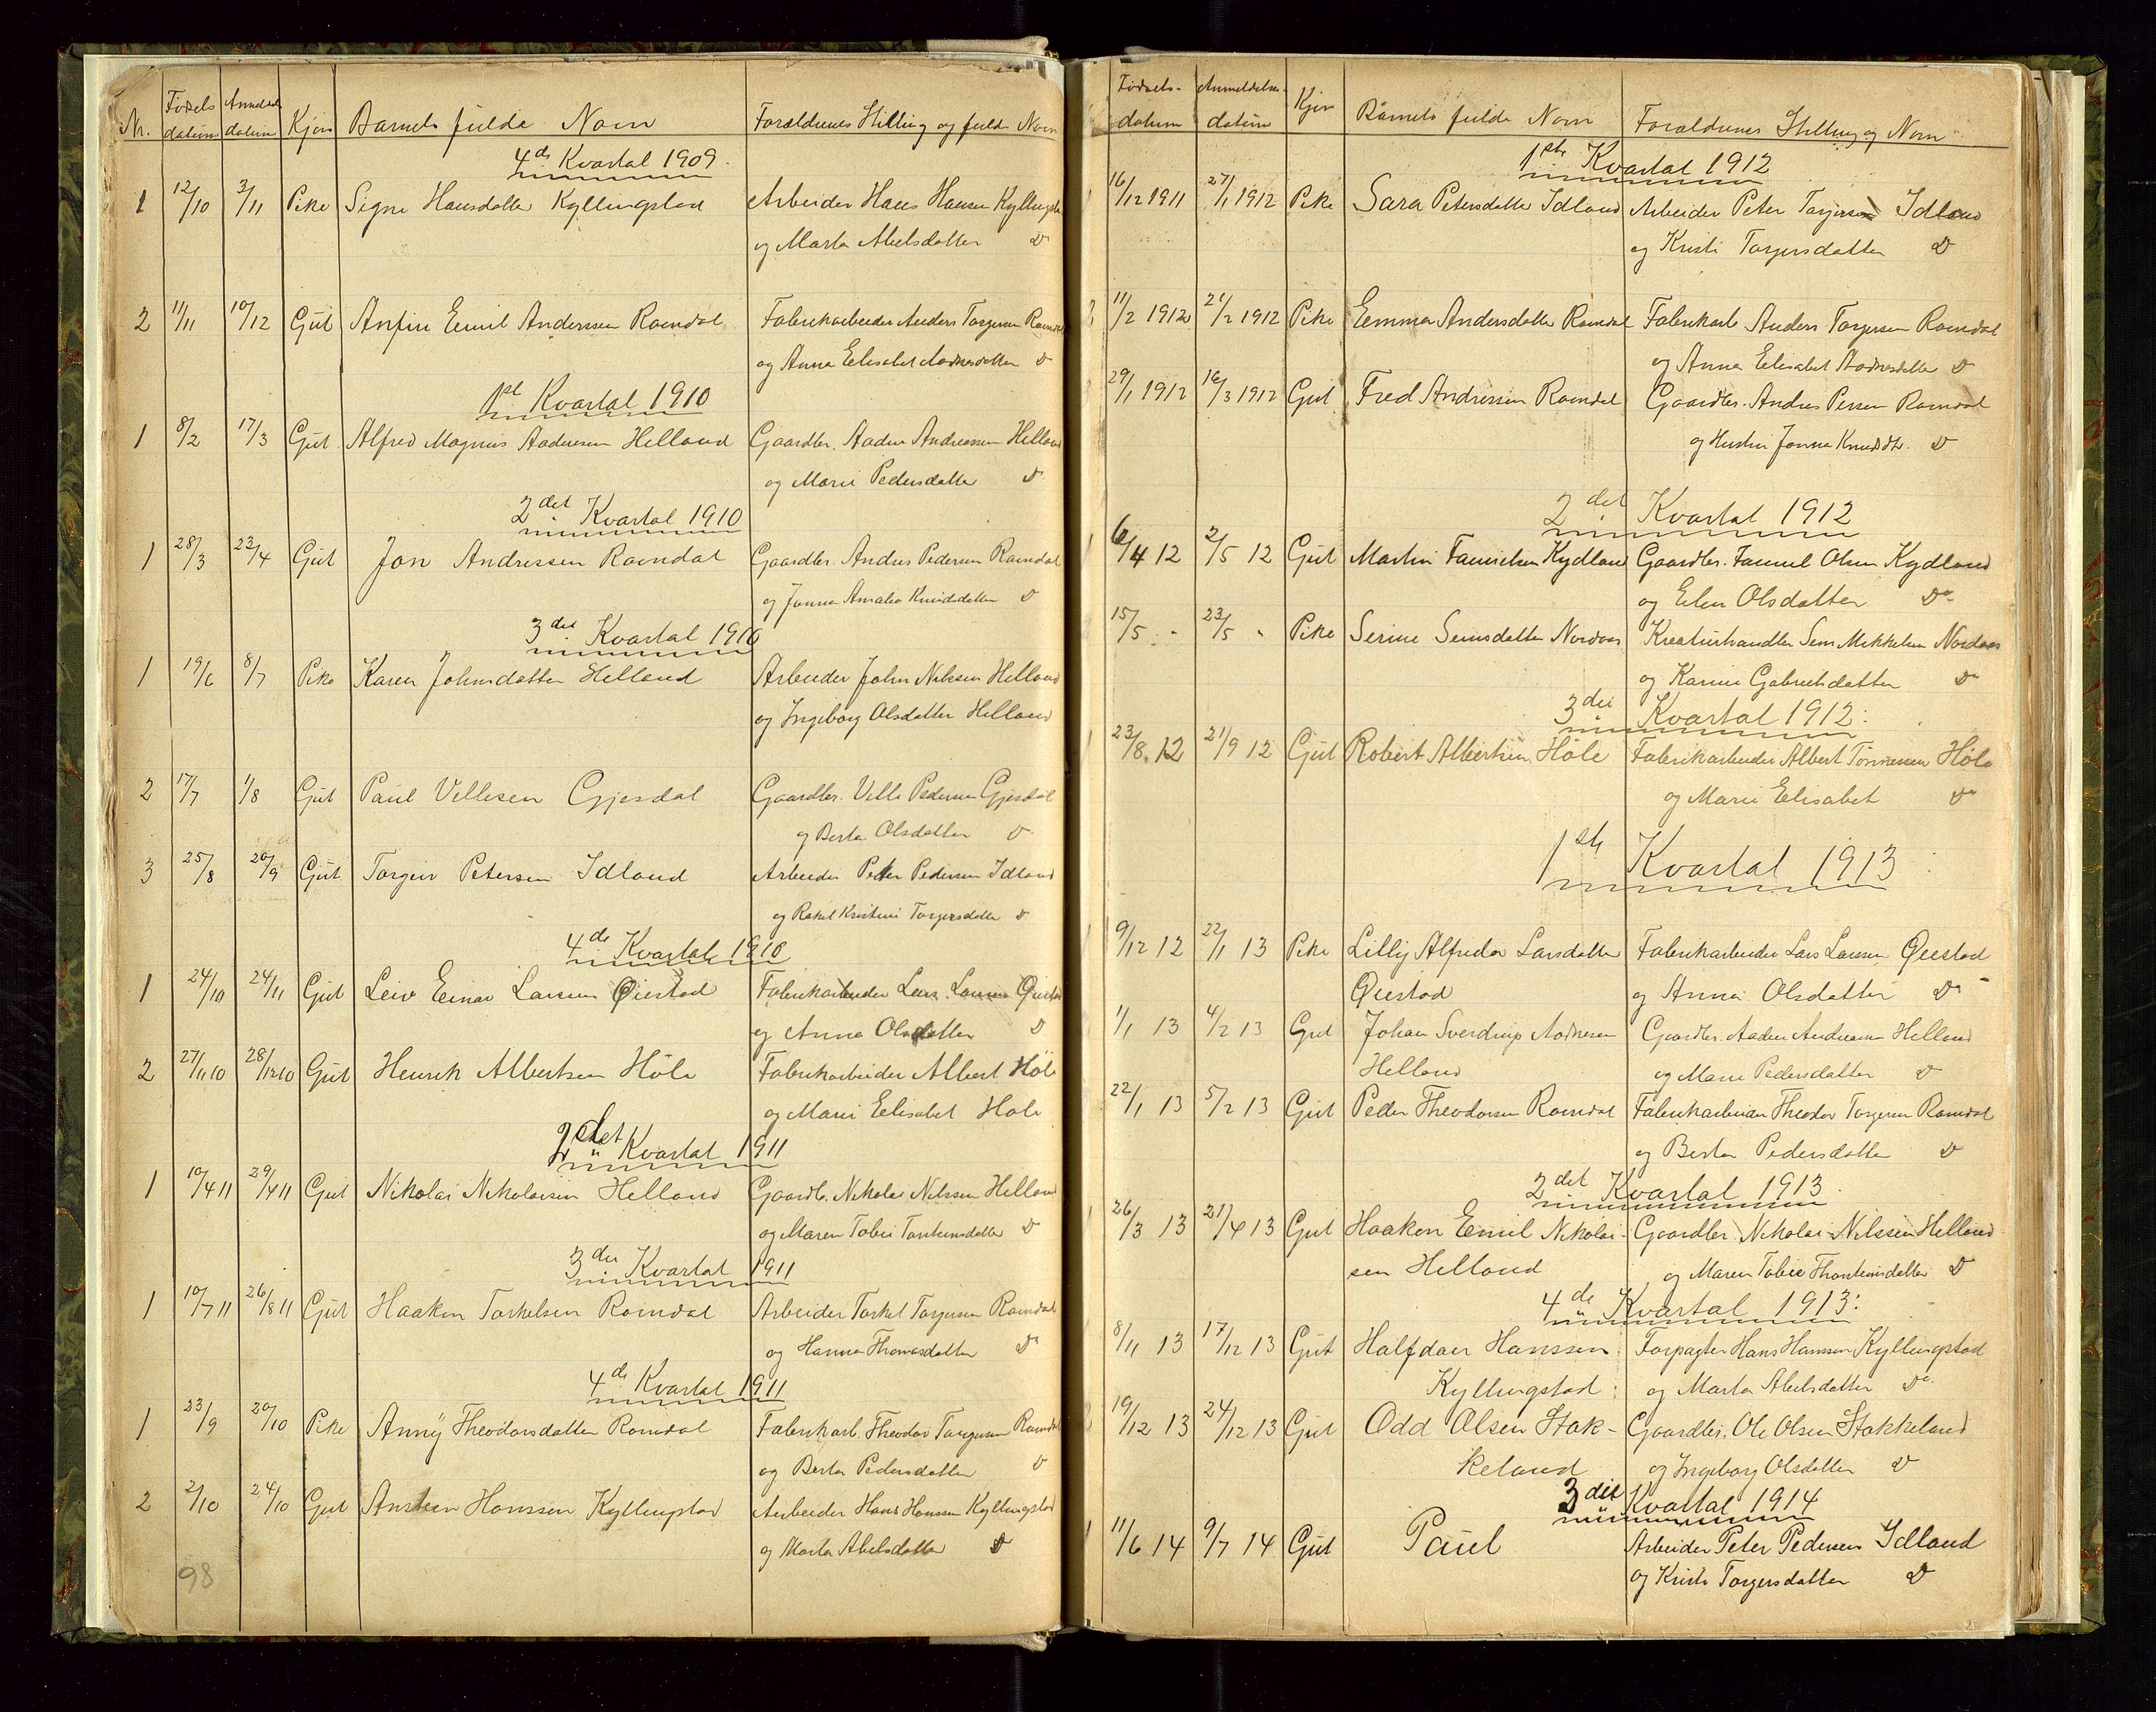 Nr. Fødsels datum Anmeldel. datum Kjøn Barnets fulde Navn Forældrenes Stilling og fulde Navn
4de Kvartal 1909.
1 12/10 3/11 Pike Signe Hansdatter Kyllingstad Arbeider Hans Hansen Kyllingsta
og Marta Abelsdatter Do
2 11/11 10/12 Gut Anfin Emil Anderssen Ravndal Fabrikarbeider Anders Torgersen Ravndal
og Anna Elisabet Aadnesdatter Do
1ste Kvartal 1910
1 8/2 17/3 Gut Alfred Magnus Aadnesen Helland Gaardbr. Aadne Andreassen Helland
og Marie Pedersdatter Do
2det Kvartal 1910
1 28/3 23/4 Gut Jon Andressen Ravndal Gaardbr. Andres Pedersen Ravndal
og Janna Amalia Knudsdatter Do
3die Kvartal 1910
1 19/6 8/7 Pike Karen Johnsdatter Helland Arbeider John Nilssen Helland
og Ingeborg Olsdatter Helland
2 17/7 1/8 Gut Paul Villesen Gjesdal Gaardbr. Ville Pedersen Gjesdal
og Berta Olsdatter Do
3 25/8 20/9 Gut Torgeir Petersen Idland Arbeider Peter Pedersen Idland
og Rakel Kristine Torgersdatter Do
4de Kvartal 1910
1 24/10 24/11 Gut Leiv Einar Larssen Øiestad Fabrikarbeider Lars Larssen Øiesta
og Anna Olsdatter Do
2 27/11 10 28/12 10 Gut Henrik Albertsen Höle Fabrikarbeider Albert Höle
og Marie Elisabet Hole
2det Kvartal 1911
1 10/4 11 29/4 11 Gut Nikolai Nikolaisen Helland Gaardb. Nikolai Nilssen Helland
og Maren Tobie Torsteinsdatter Do
3die Kvartal 1911
1 10/7 11 26/8 11 Gut Haakon Torkelsen Ravndal Arbeider Torkel Torgersen Ravndal
og Hanna Thomasdatter Do
4de Kvartal 1911
1 23/9 20/10 Pike Anny Theodorsdatter Ravndal Fabrikarb. Theodor Torgersen Ravndal
og Berta Pedersdatter Do
2 2/10 24/10 Gut Anstein Hanssen Kyllingstad Arbeider Hans Hanssen Kyllingstad
og Marta Abelsdatter Do
98
Fødsels-datum Anmeldelses-datum Kjøn Barnets fulde Navn Forældrenes Stilling og Navn
1ste Kvartal 1912
16/12 1911 27/1 1912 Pike Sara Petersdatter Idland Arbeider Peter Torjersen Idland
og Kristi Torgersdatter Do
11/2 1912 21/2 1912 Pike Emma Andersdatter Ravndal Fabrikarb Anders Torgersen Ravndal
og Anna Elisabet Aadnesdatter Do
29/1 1912 16/3 1912 Gut Fred Andressen Ravndal Gaardbr. Andres Persen Ravndal
og Hustru Janna Knudsdtr. Do
2det Kvartal 1912
6/4 12 2/5 12 Gut Martin Samuelsen Kydland Gaardbr. Samuel Olsen Kydland
og Elen Olsdatter Do
15/5 - 23/5 - Pike Serine Semsdatter Nordaas Kreaturhandler Sem Mikkelsen Nordaas
og Karine Gabrielsdatter Do
3die Kvartal 1912:
23/8. 12 21/9 12 Gut Robert Albertsen Höle Fabrikarbeider Albert Tønnessen Höle
og Marie Elisabet Do
1ste Kvartal 1913
9/12 12 22/1 13 Pike Lilly Alfreda Larsdatter Fabrikarbeider Lars Larssen Øiestad
Øiestad og Anna Olsdatter Do
1/1 13 4/2 13 Gut Johan Sverdrup Aadnesen Gaardbr. Aadne Andreassen Helland
Helland og Marie Pedersdatter Do
22/1 13 5/2 13 Gut Peder Theodorsen Ravndal Fabrikarbeider Theodor Torgersen Ravndal
og Berta Pedersdatter Do
2det Kvartal 1913.
26/3 13 21/4 13 Gut Haakon Emil Nikolai- Gaardbr. Nikolai Nilssen Helland
sen Helland og Maren Tobie Thorsteinsdatter Do
4de Kvartal 1913:
8/11 13 17/12 13 Gut Halfdan Hanssen Forpagter Hans Hanssen Kyllingstad
Kyllingstad: og Marta Abelsdatter Do
19/12 13 24/12 13 Gut Odd Olsen Stak- Gaardbr. Ole Olsen Stakkeland
keland og Ingeborg Olsdatter Do
3die Kvartal 1914
11/6 14 9/7 14 Gut Paul Arbeider Peter Pedersen Idland
og Kristi Torgersdatter Do